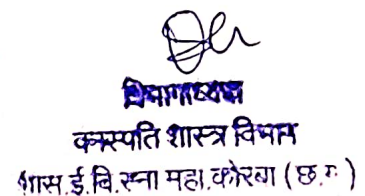 विभागाध्यक्ष
वनस्पति शास्त्र विभाग
शास.ई.वि.स्ना महा.कोरबा (छ.ग.)